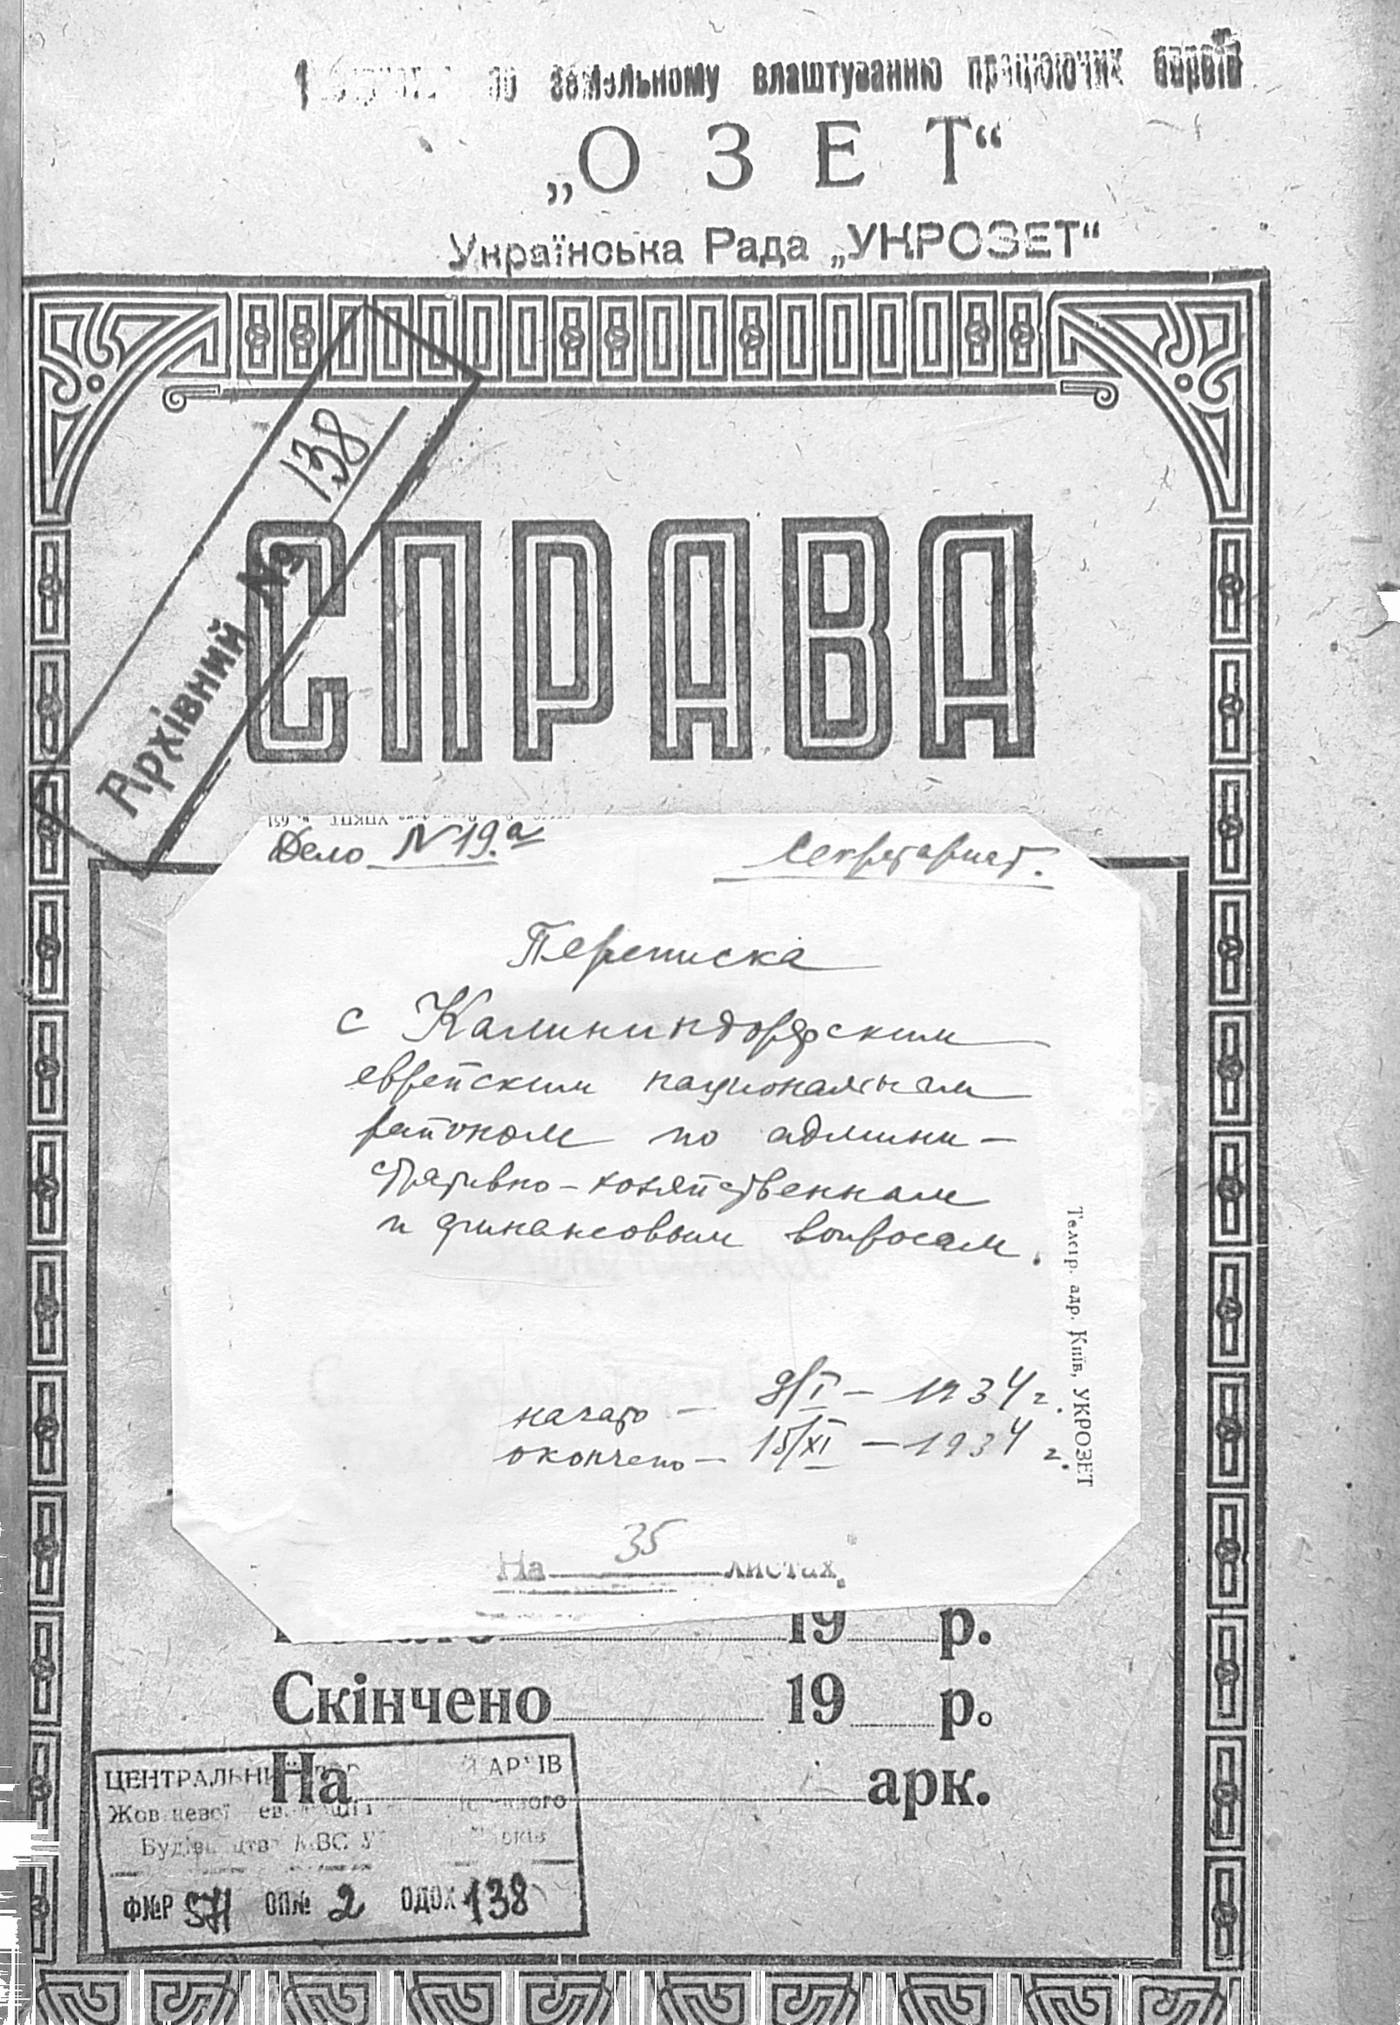 по земельному влаштуванню працюючих євреїв
„ОЗЕТ“
Українська Рада „УКРОЗЕТ“
Архівний № 138
СПРАВА
Дело N 19.а
Секретариат.
Переписка
с Калининдорфским
еврейским национальным
районом по админи-
стративно-хозяйственным
и финансовым вопросам.
Телегр. адр. Київ, УКРОЗЕТ
начато — 9/I — 1934 г.
окончено — 15/XI — 1934 г.
На 35 листах.
19 р.
Скінчено 19 р.
На арк.
ЦЕНТРАЛЬНИЙ АРХІВ
Будівництва МВС
ФNР 5Н ОПN 2 ОДОХ 138